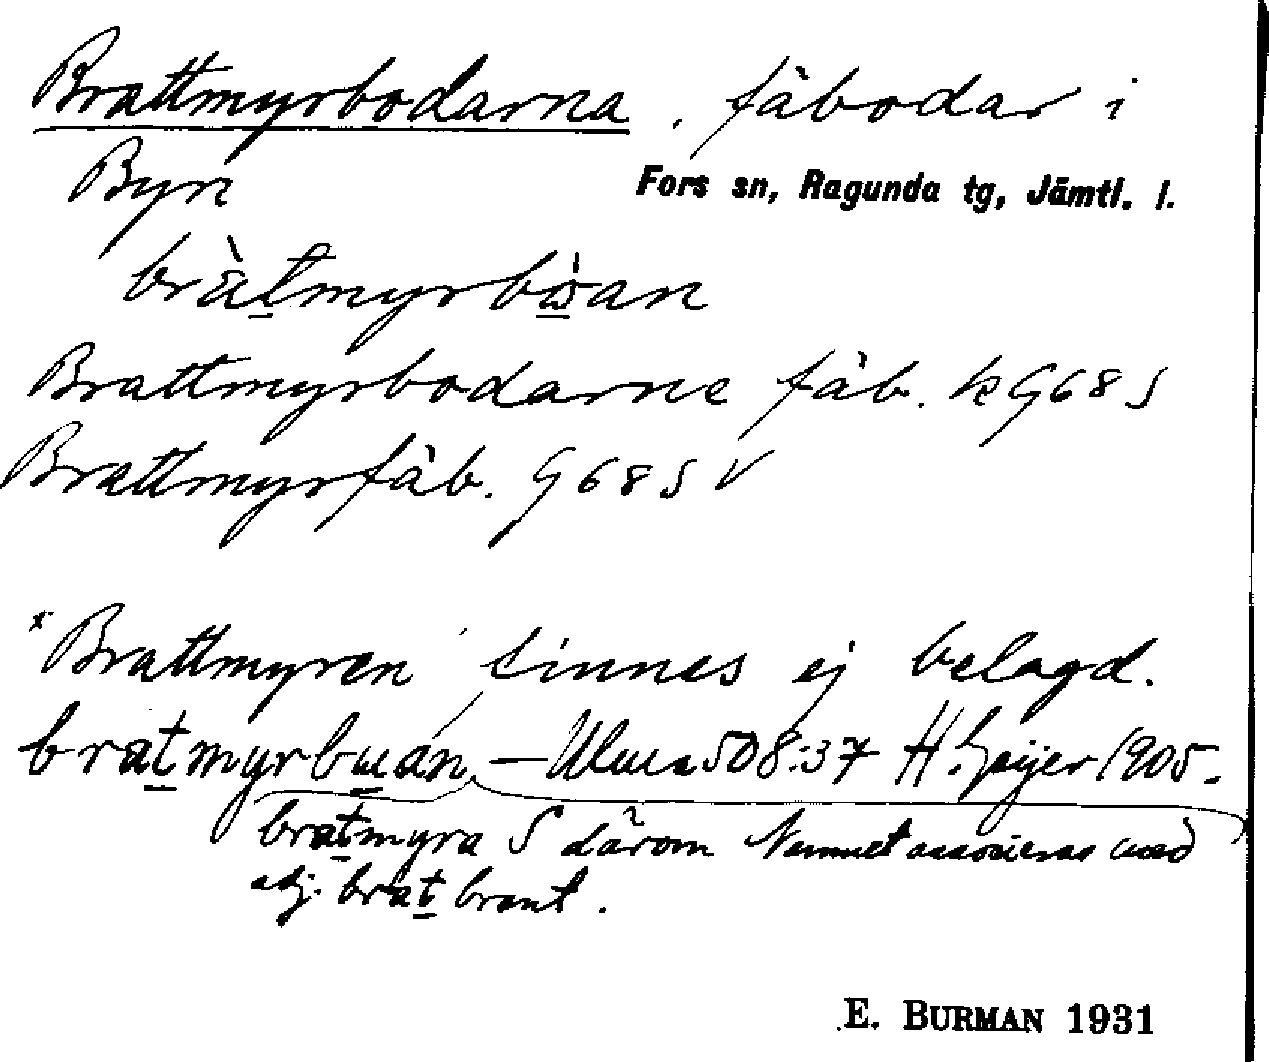 Brattmyrbodarna, fäbodar i
Byn
Fors sn, Ragunda tg, Jämtl. l.
bràt̲myrbὼ̲an
Brattmyrbodarne fäb. k G68S
Brattmyrfäb. G68SV
*Brattmyren finnes ej belagd.
brat̲myrbu̲an, — Ulma 508:37 H. Geijer 1905.
brat̲myra S därom Namnet associeras med
adj. brat̲ brant.
E. BURMAN 1931